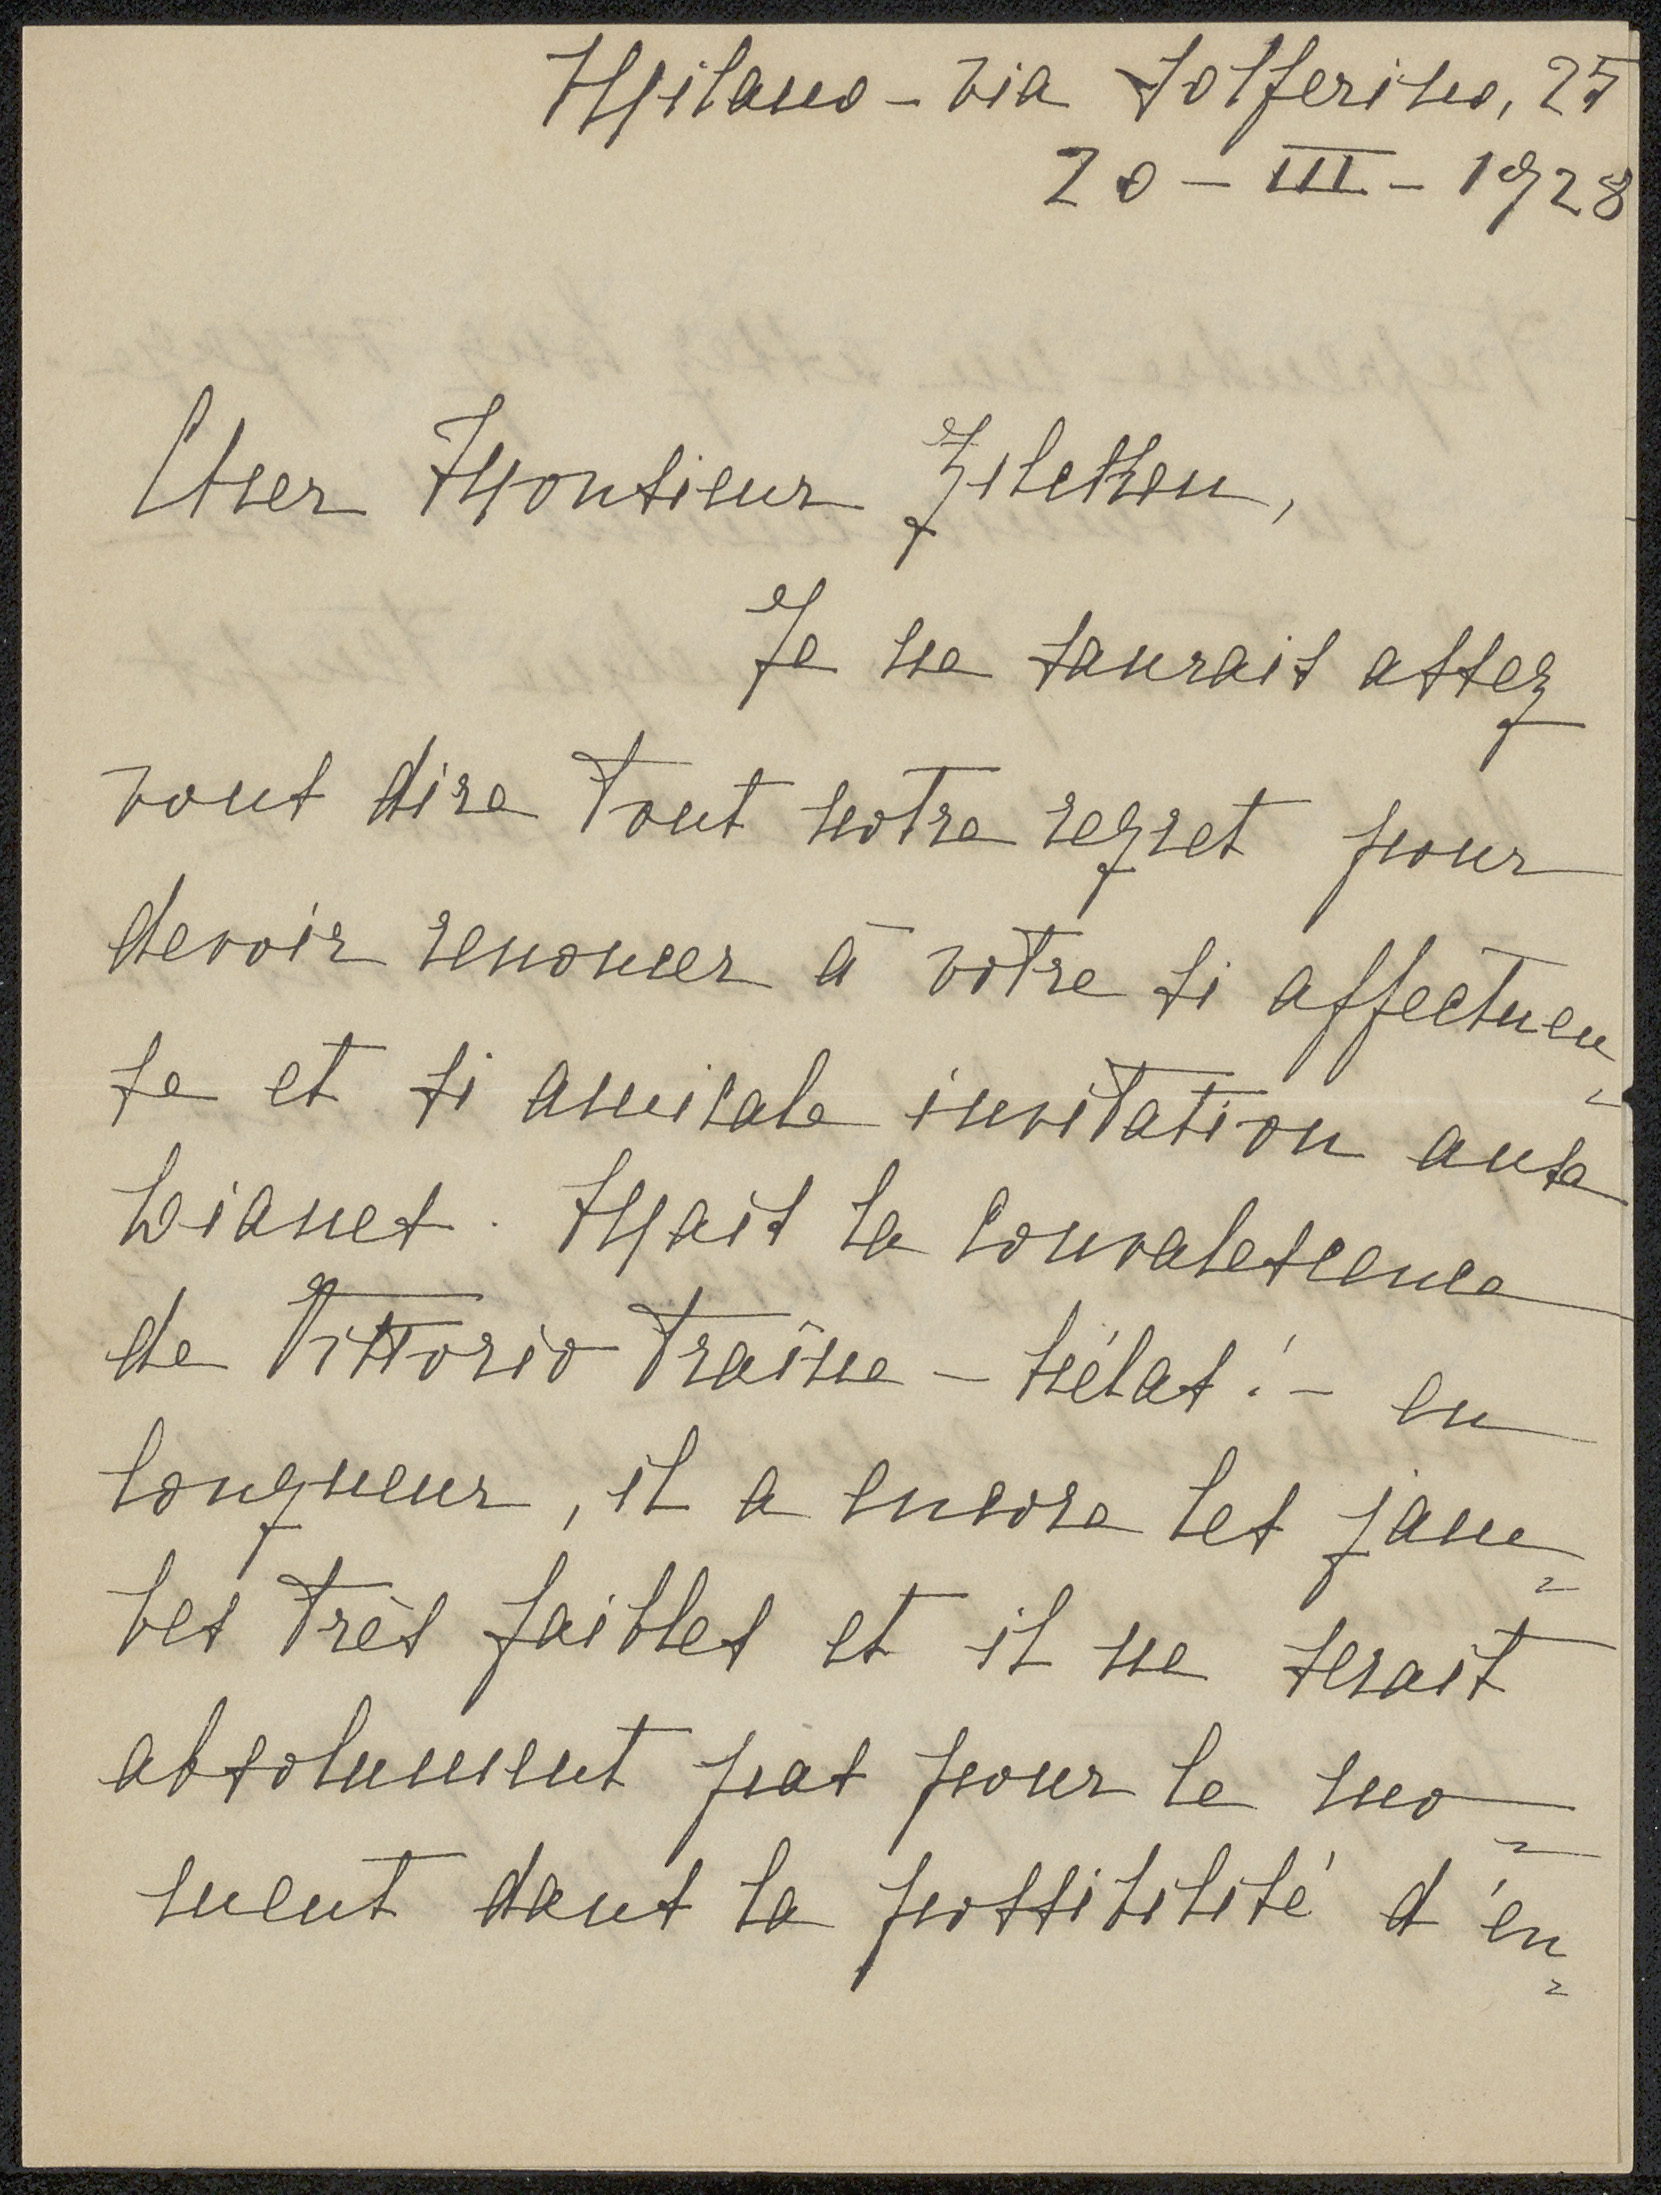 Milano - via Solferino, 25
20 - III - 1928
Cher Monsieur Zilcken,
Je ne saurais assez
vous dire tout notre regret pour
devoir renoncer à votre si affectueu=
se et si amicale invitation aux
Lianes. Mais la convalescence
de Vittorio traîne - hélas! - en
longueur, il a encore les jam=
bes très faibles et il ne serait
absolument pas pour le mo=
ment dans la possibilité d'en=